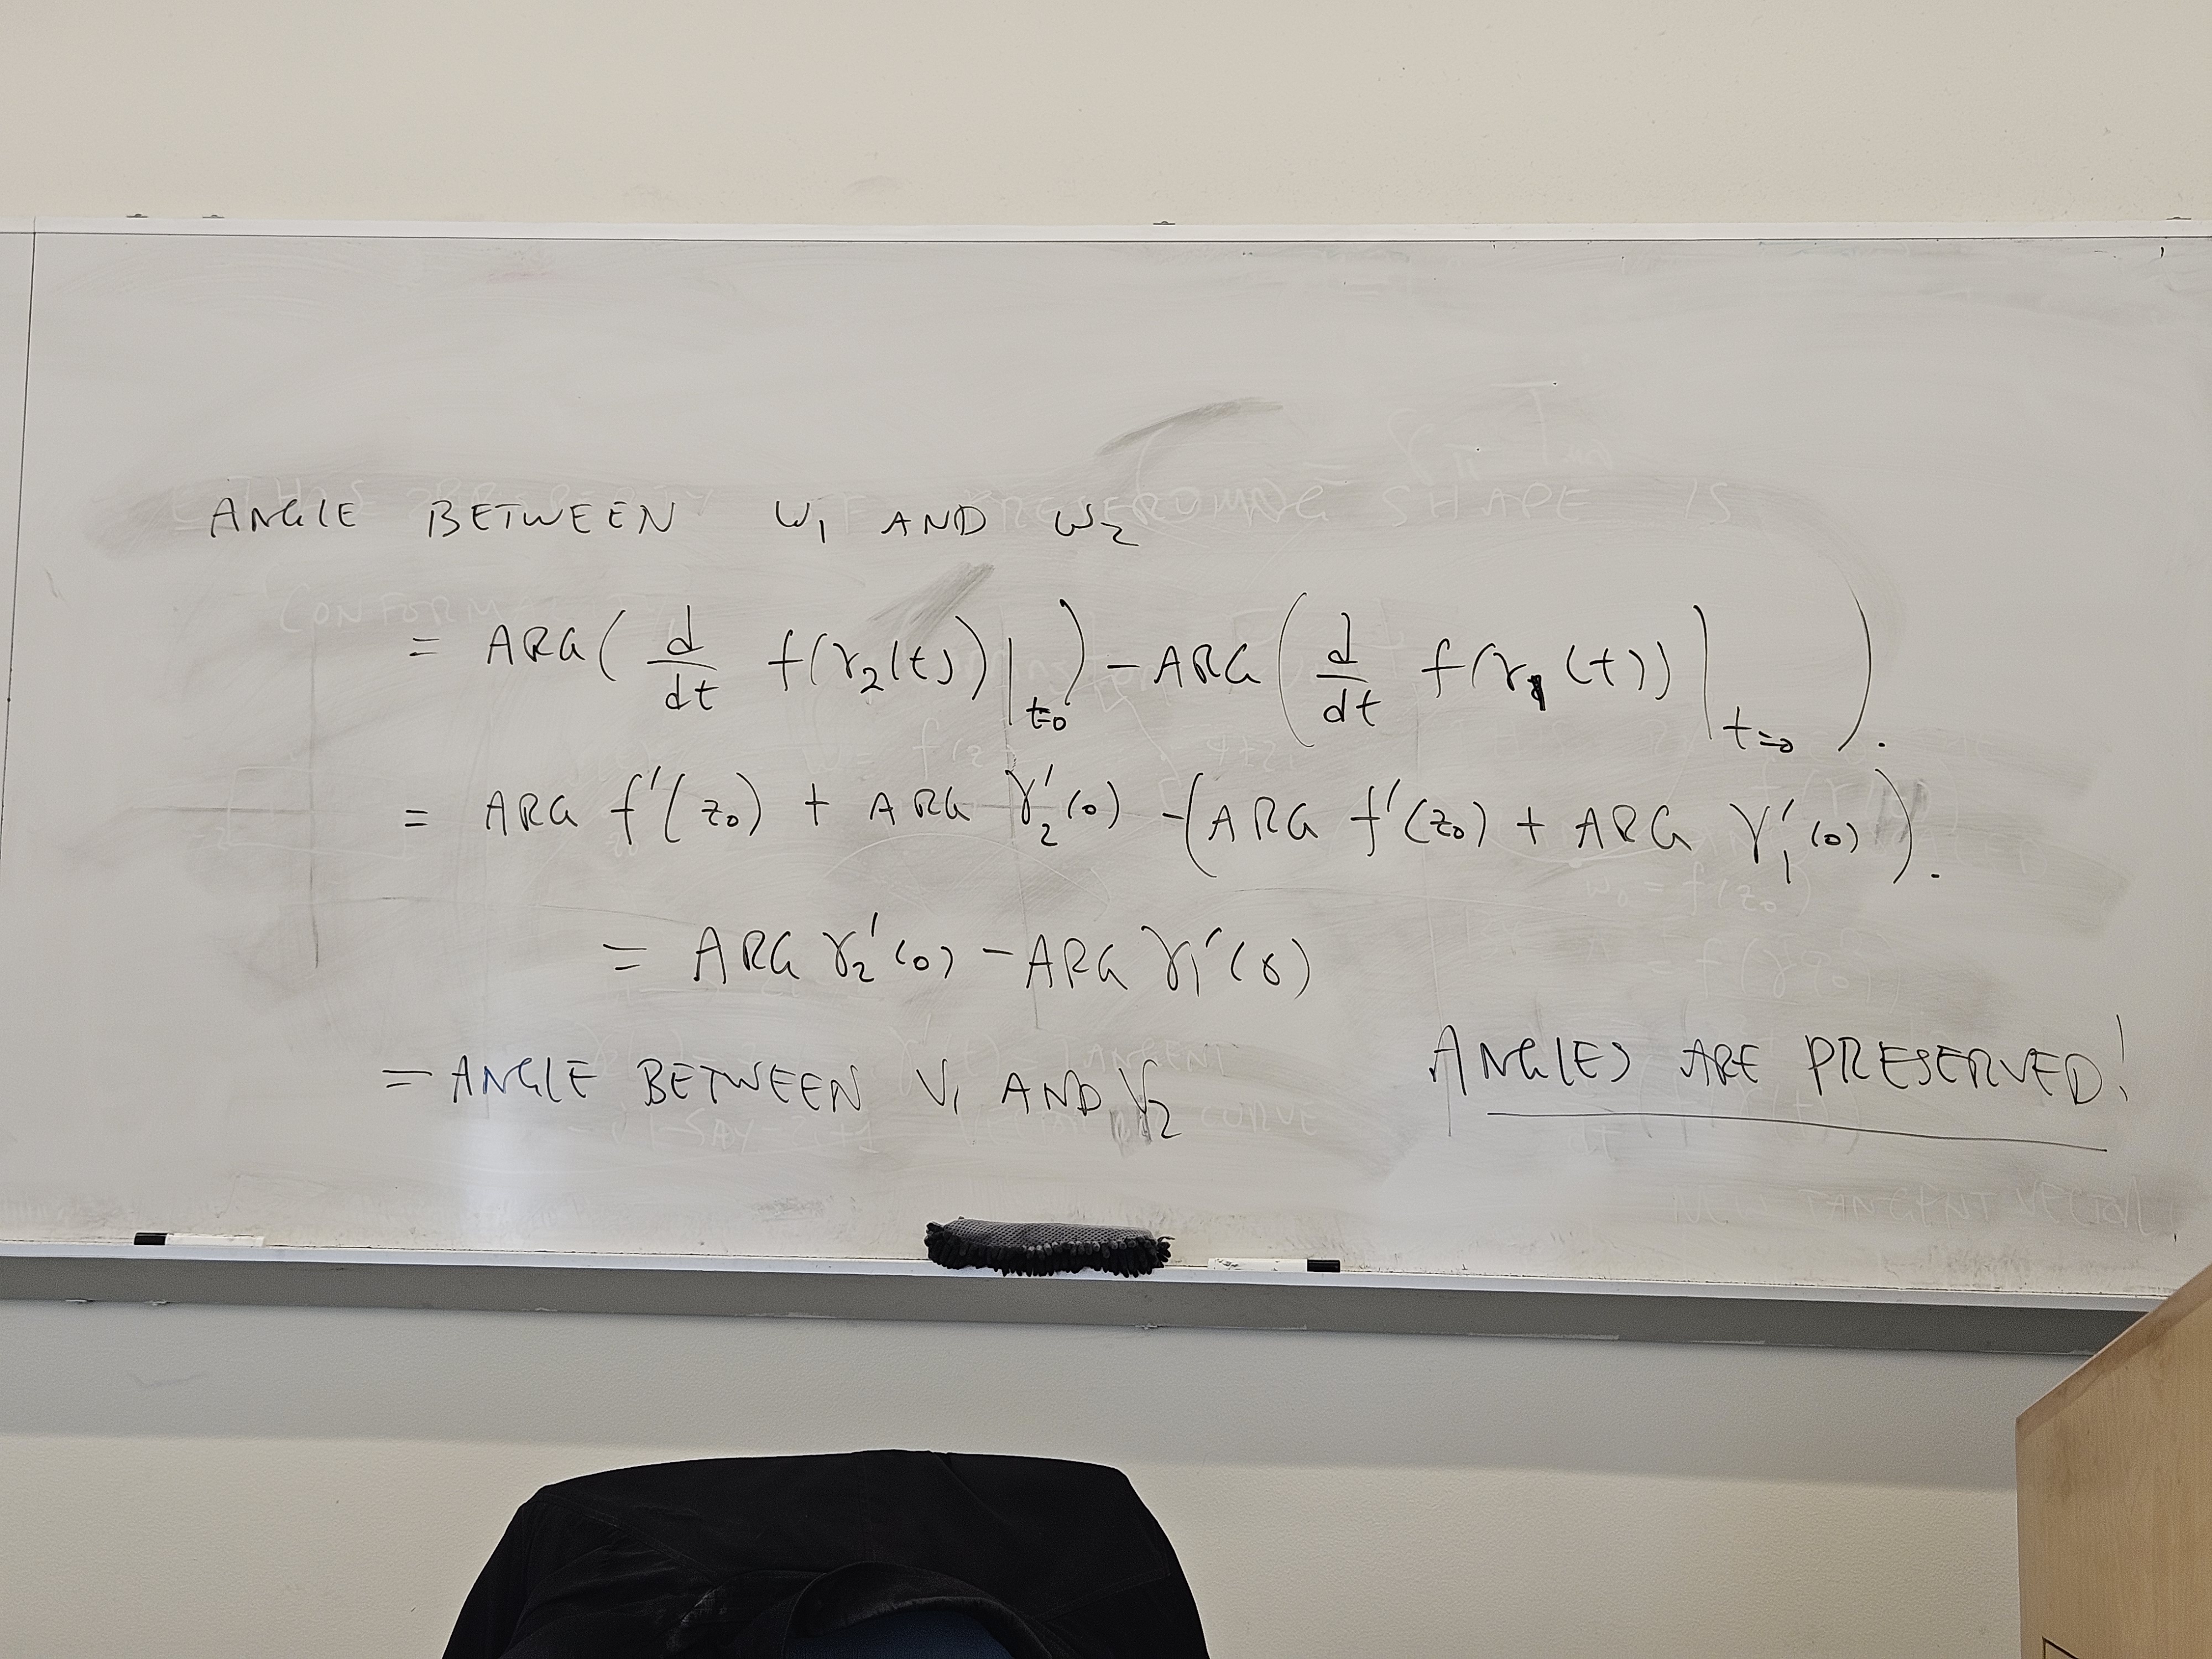 ANGLE BETWEEN w₁ AND w₂
= ARG( d/dt f(γ₂(t))|_{t=0} ) - ARG( d/dt f(γ₁(t))|_{t=0} ).
= ARG f'(z₀) + ARG γ₂'(0) - (ARG f'(z₀) + ARG γ₁'(0)).
= ARG γ₂'(0) - ARG γ₁'(0)
= ANGLE BETWEEN V₁ AND V₂
ANGLES ARE PRESERVED!